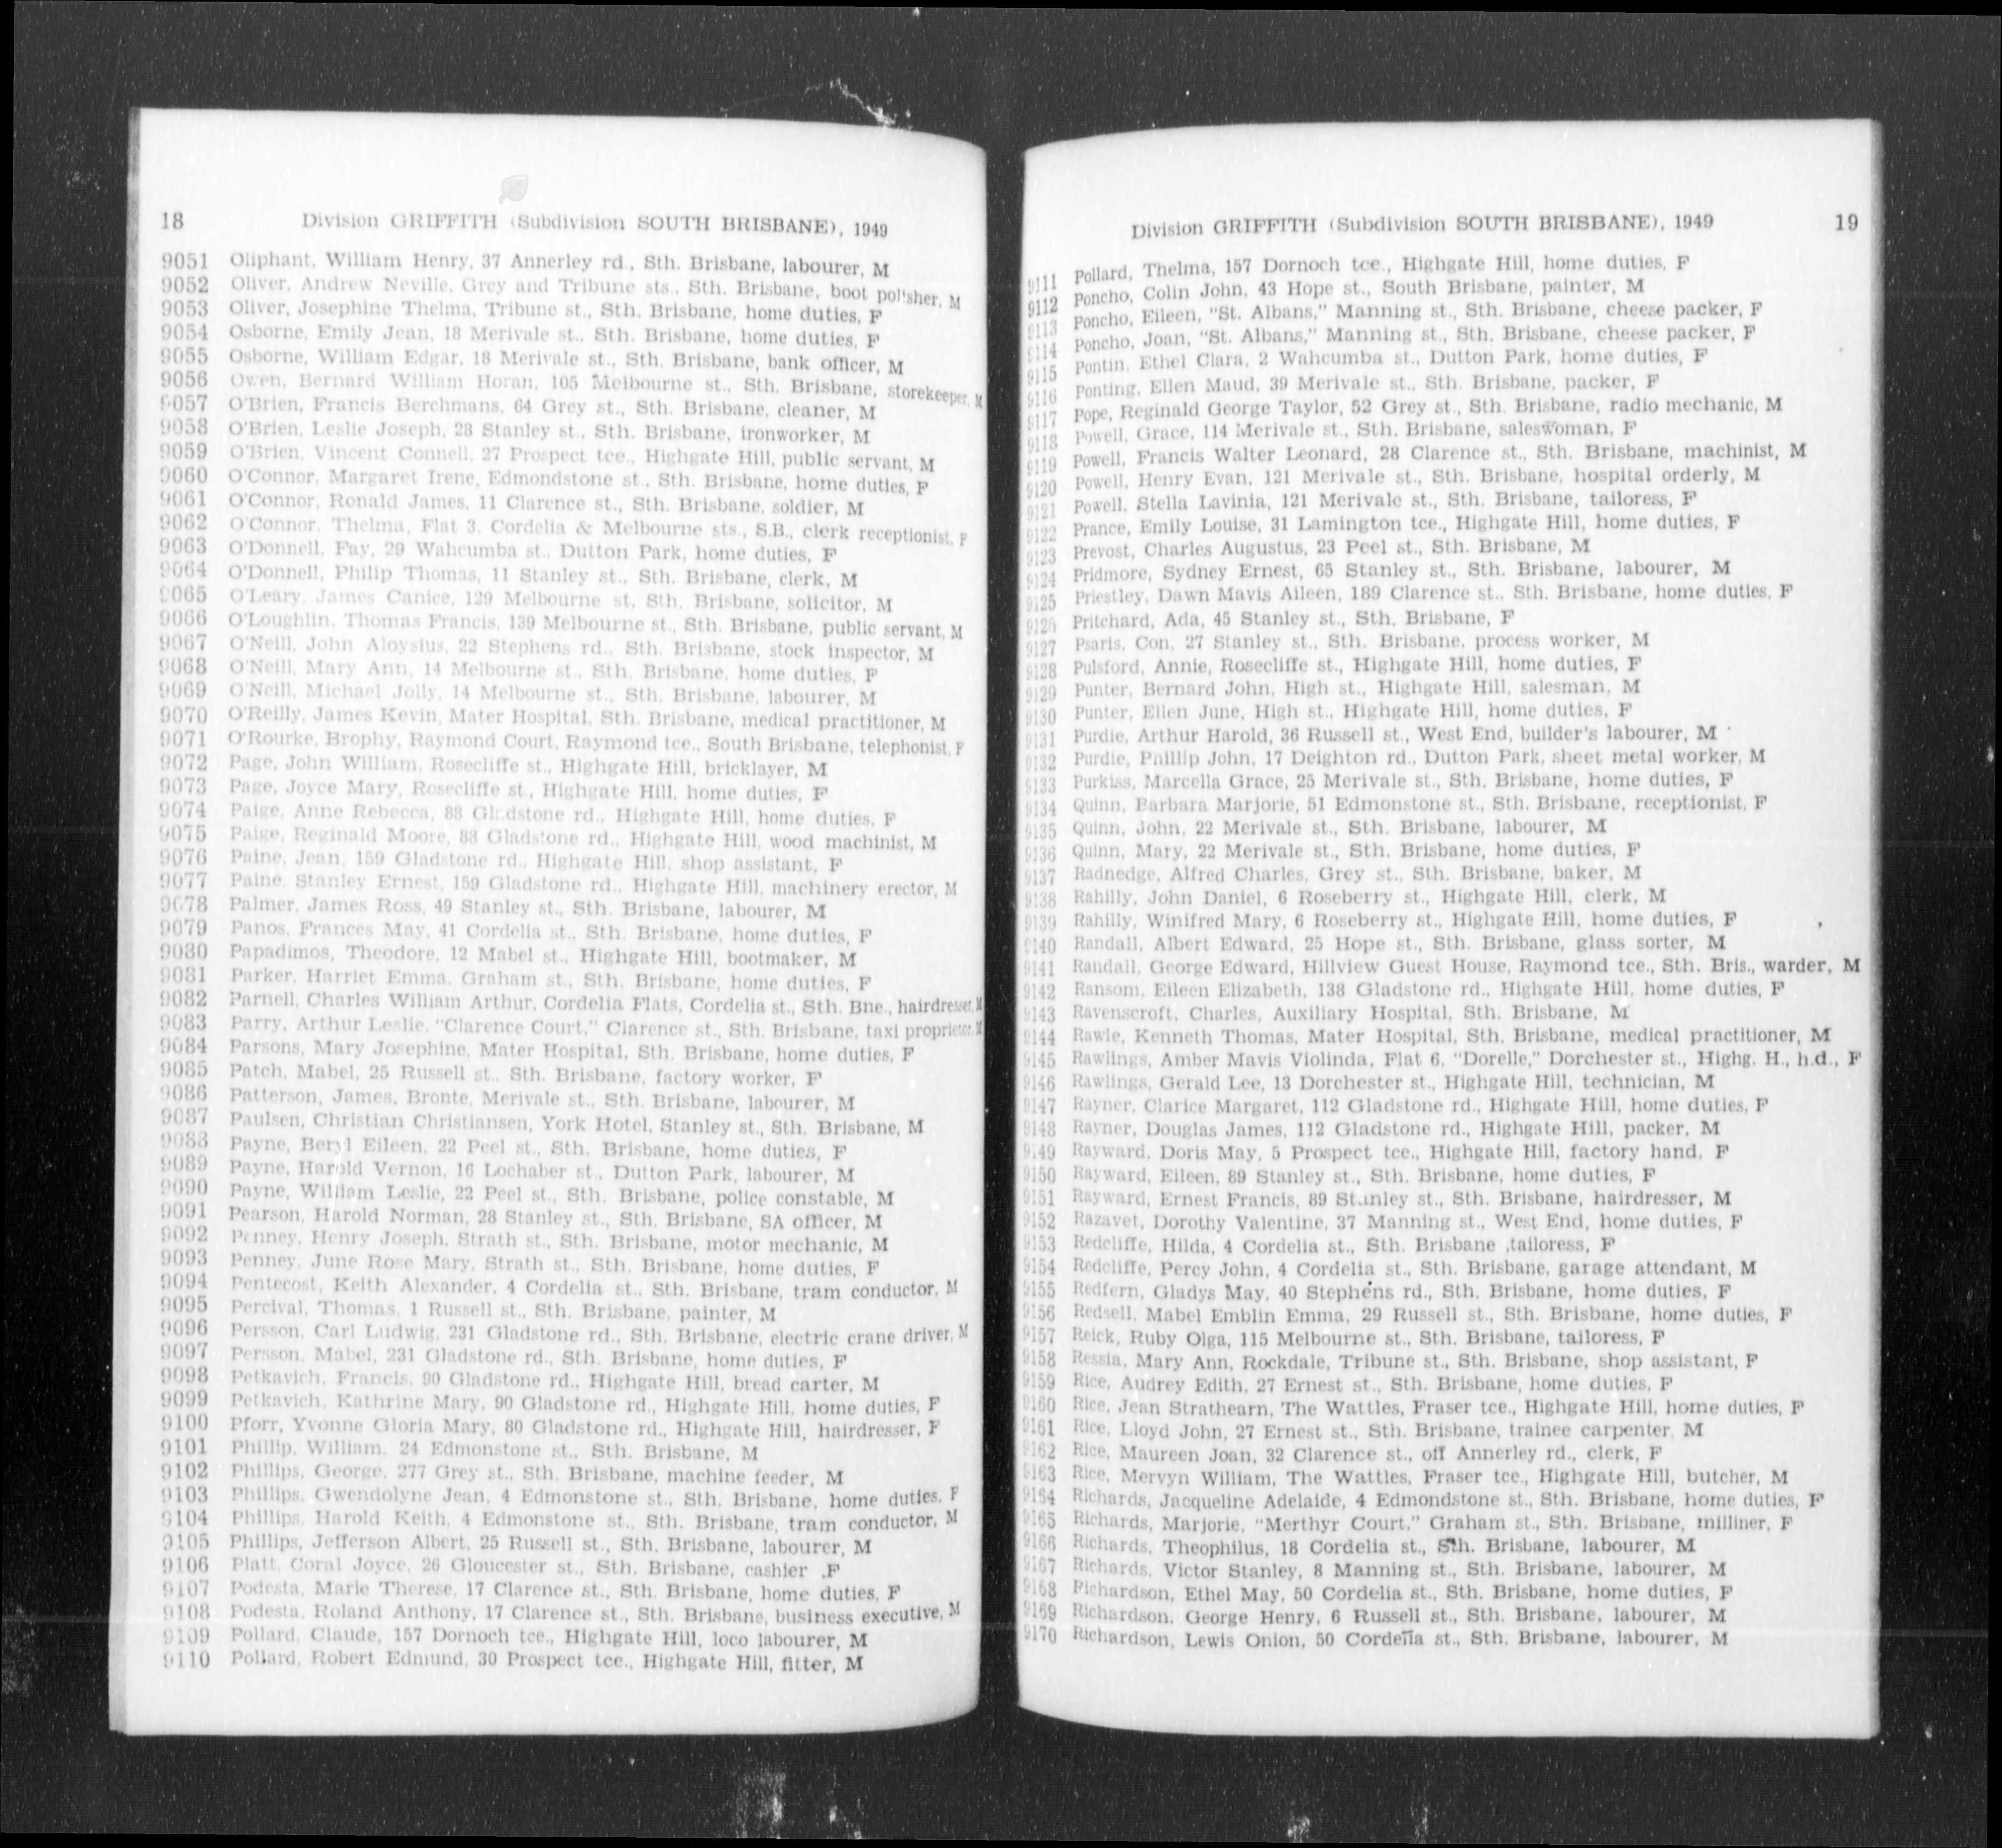 18 Division GRIFFITH (Subdivision SOUTH BRISBANE), 1949
9051 Oliphant, William Henry, 37 Annerley rd., Sth. Brisbane, labourer, M
9052 Oliver, Andrew Neville, Grey and Tribune sts., Sth. Brisbane, boot polisher, M
9053 Oliver, Josephine Thelma, Tribune st., Sth. Brisbane, home duties, F
9054 Osborne, Emily Jean, 18 Merivale st., Sth. Brisbane, home duties, F
9055 Osborne, William Edgar, 18 Merivale st., Sth. Brisbane, bank officer, M
9056 Owen, Bernard William Horan, 105 Melbourne st., Sth. Brisbane, storekeeper, M
9057 O'Brien, Francis Berchmans, 64 Grey st., Sth. Brisbane, cleaner, M
9058 O'Brien, Leslie Joseph, 28 Stanley st., Sth. Brisbane, ironworker, M
9059 O'Brien, Vincent Connell, 27 Prospect tce., Highgate Hill, public servant, M
9060 O'Connor, Margaret Irene, Edmondstone st., Sth. Brisbane, home duties, F
9061 O'Connor, Ronald James, 11 Clarence st., Sth. Brisbane, soldier, M
9062 O'Connor, Thelma, Flat 3, Cordelia & Melbourne sts., S.B., clerk receptionist, F
9063 O'Donnell, Fay, 29 Wahcumba st., Dutton Park, home duties, F
9064 O'Donnell, Philip Thomas, 11 Stanley st., Sth. Brisbane, clerk, M
9065 O'Leary, James Canice, 129 Melbourne st, Sth. Brisbane, solicitor, M
9066 O'Loughlin, Thomas Francis, 139 Melbourne st., Sth. Brisbane, public servant, M
9067 O'Neill, John Aloysius, 22 Stephens rd., Sth. Brisbane, stock inspector, M
9068 O'Neill, Mary Ann, 14 Melbourne st., Sth. Brisbane, home duties, F
9069 O'Neill, Michael Jolly, 14 Melbourne st., Sth. Brisbane, labourer, M
9070 O'Reilly, James Kevin, Mater Hospital, Sth. Brisbane, medical practitioner, M
9071 O'Rourke, Brophy, Raymond Court, Raymond tce., South Brisbane, telephonist, F
9072 Page, John William, Rosecliffe st., Highgate Hill, bricklayer, M
9073 Page, Joyce Mary, Rosecliffe st., Highgate Hill, home duties, F
9074 Paige, Anne Rebecca, 88 Gladstone rd., Highgate Hill, home duties, F
9075 Paige, Reginald Moore, 88 Gladstone rd., Highgate Hill, wood machinist, M
9076 Paine, Jean, 159 Gladstone rd., Highgate Hill, shop assistant, F
9077 Paine, Stanley Ernest, 159 Gladstone rd., Highgate Hill, machinery erector, M
9078 Palmer, James Ross, 49 Stanley st., Sth. Brisbane, labourer, M
9079 Panos, Frances May, 41 Cordelia st., Sth. Brisbane, home duties, F
9080 Papadimos, Theodore, 12 Mabel st., Highgate Hill, bootmaker, M
9081 Parker, Harriet Emma, Graham st., Sth. Brisbane, home duties, F
9082 Parnell, Charles William Arthur, Cordelia Flats, Cordelia st., Sth. Bne., hairdresser, M
9083 Parry, Arthur Leslie, "Clarence Court," Clarence st., Sth. Brisbane, taxi proprietor, M
9084 Parsons, Mary Josephine, Mater Hospital, Sth. Brisbane, home duties, F
9085 Patch, Mabel, 25 Russell st., Sth. Brisbane, factory worker, F
9086 Patterson, James, Bronte, Merivale st., Sth. Brisbane, labourer, M
9087 Paulsen, Christian Christiansen, York Hotel, Stanley st., Sth. Brisbane, M
9088 Payne, Beryl Eileen, 22 Peel st., Sth. Brisbane, home duties, F
9089 Payne, Harold Vernon, 16 Lochaber st., Dutton Park, labourer, M
9090 Payne, William Leslie, 22 Peel st., Sth. Brisbane, police constable, M
9091 Pearson, Harold Norman, 28 Stanley st., Sth. Brisbane, SA officer, M
9092 Penney, Henry Joseph, Strath st., Sth. Brisbane, motor mechanic, M
9093 Penney, June Rose Mary, Strath st., Sth. Brisbane, home duties, F
9094 Pentecost, Keith Alexander, 4 Cordelia st., Sth. Brisbane, tram conductor, M
9095 Percival, Thomas, 1 Russell st., Sth. Brisbane, painter, M
9096 Persson, Carl Ludwig, 231 Gladstone rd., Sth. Brisbane, electric crane driver, M
9097 Persson, Mabel, 231 Gladstone rd., Sth. Brisbane, home duties, F
9098 Petkavich, Francis, 90 Gladstone rd., Highgate Hill, bread carter, M
9099 Petkavich, Kathrine Mary, 90 Gladstone rd., Highgate Hill, home duties, F
9100 Pforr, Yvonne Gloria Mary, 80 Gladstone rd., Highgate Hill, hairdresser, F
9101 Phillip, William, 24 Edmonstone st., Sth. Brisbane, M
9102 Phillips, George, 277 Grey st., Sth. Brisbane, machine feeder, M
9103 Phillips, Gwendolyne Jean, 4 Edmonstone st., Sth. Brisbane, home duties, F
9104 Phillips, Harold Keith, 4 Edmonstone st., Sth. Brisbane, tram conductor, M
9105 Phillips, Jefferson Albert, 25 Russell st., Sth. Brisbane, labourer, M
9106 Platt, Coral Joyce, 26 Gloucester st., Sth. Brisbane, cashier ,F
9107 Podesta, Marie Therese, 17 Clarence st., Sth. Brisbane, home duties, F
9108 Podesta, Roland Anthony, 17 Clarence st., Sth. Brisbane, business executive, M
9109 Pollard, Claude, 157 Dornoch tce., Highgate Hill, loco labourer, M
9110 Pollard, Robert Edmund, 30 Prospect tce., Highgate Hill, fitter, M
Division GRIFFITH (Subdivision SOUTH BRISBANE), 1949 19
9111 Pollard, Thelma, 157 Dornoch tce., Highgate Hill, home duties, F
9112 Poncho, Colin John, 43 Hope st., South Brisbane, painter, M
9113 Poncho, Eileen, "St. Albans," Manning st., Sth. Brisbane, cheese packer, F
9114 Poncho, Joan, "St. Albans," Manning st., Sth. Brisbane, cheese packer, F
9115 Pontin, Ethel Clara, 2 Wahcumba st., Dutton Park, home duties, F
9116 Ponting, Ellen Maud, 39 Merivale st., Sth. Brisbane, packer, F
9117 Pope, Reginald George Taylor, 52 Grey st., Sth. Brisbane, radio mechanic, M
9118 Powell, Grace, 114 Merivale st., Sth. Brisbane, saleswoman, F
9119 Powell, Francis Walter Leonard, 28 Clarence st., Sth. Brisbane, machinist, M
9120 Powell, Henry Evan, 121 Merivale st., Sth. Brisbane, hospital orderly, M
9121 Powell, Stella Lavinia, 121 Merivale st., Sth. Brisbane, tailoress, F
9122 Prance, Emily Louise, 31 Lamington tce., Highgate Hill, home duties, F
9123 Prevost, Charles Augustus, 23 Peel st., Sth. Brisbane, M
9124 Pridmore, Sydney Ernest, 65 Stanley st., Sth. Brisbane, labourer, M
9125 Priestley, Dawn Mavis Aileen, 189 Clarence st., Sth. Brisbane, home duties, F
9126 Pritchard, Ada, 45 Stanley st., Sth. Brisbane, F
9127 Psaris, Con, 27 Stanley st., Sth. Brisbane, process worker, M
9128 Pulsford, Annie, Rosecliffe st., Highgate Hill, home duties, F
9129 Punter, Bernard John, High st., Highgate Hill, salesman, M
9130 Punter, Ellen June, High st., Highgate Hill, home duties, F
9131 Purdie, Arthur Harold, 36 Russell st., West End, builder's labourer, M
9132 Purdie, Phillip John, 17 Deighton rd., Dutton Park, sheet metal worker, M
9133 Purkiss, Marcella Grace, 25 Merivale st., Sth. Brisbane, home duties, F
9134 Quinn, Barbara Marjorie, 51 Edmonstone st., Sth. Brisbane, receptionist, F
9135 Quinn, John, 22 Merivale st., Sth. Brisbane, labourer, M
9136 Quinn, Mary, 22 Merivale st., Sth. Brisbane, home duties, F
9137 Radnedge, Alfred Charles, Grey st., Sth. Brisbane, baker, M
9138 Rahilly, John Daniel, 6 Roseberry st., Highgate Hill, clerk, M
9139 Rahilly, Winifred Mary, 6 Roseberry st., Highgate Hill, home duties, F
9140 Randall, Albert Edward, 25 Hope st., Sth. Brisbane, glass sorter, M
9141 Randall, George Edward, Hillview Guest House, Raymond tce., Sth. Bris., warder, M
9142 Ransom, Eileen Elizabeth, 138 Gladstone rd., Highgate Hill, home duties, F
9143 Ravenscroft, Charles, Auxiliary Hospital, Sth. Brisbane, M
9144 Rawle, Kenneth Thomas, Mater Hospital, Sth. Brisbane, medical practitioner, M
9145 Rawlings, Amber Mavis Violinda, Flat 6, "Dorelle," Dorchester st., Highg. H., h.d., F
9146 Rawlings, Gerald Lee, 13 Dorchester st., Highgate Hill, technician, M
9147 Rayner, Clarice Margaret, 112 Gladstone rd., Highgate Hill, home duties, F
9148 Rayner, Douglas James, 112 Gladstone rd., Highgate Hill, packer, M
9149 Rayward, Doris May, 5 Prospect tce., Highgate Hill, factory hand, F
9150 Rayward, Eileen, 89 Stanley st., Sth. Brisbane, home duties, F
9151 Rayward, Ernest Francis, 89 Stanley st., Sth. Brisbane, hairdresser, M
9152 Razavet, Dorothy Valentine, 37 Manning st., West End, home duties, F
9153 Redcliffe, Hilda, 4 Cordelia st., Sth. Brisbane ,tailoress, F
9154 Redcliffe, Percy John, 4 Cordelia st., Sth. Brisbane, garage attendant, M
9155 Redfern, Gladys May, 40 Stephens rd., Sth. Brisbane, home duties, F
9156 Redsell, Mabel Emblin Emma, 29 Russell st., Sth. Brisbane, home duties, F
9157 Reick, Ruby Olga, 115 Melbourne st., Sth. Brisbane, tailoress, F
9158 Ressia, Mary Ann, Rockdale, Tribune st., Sth. Brisbane, shop assistant, F
9159 Rice, Audrey Edith, 27 Ernest st., Sth. Brisbane, home duties, F
9160 Rice, Jean Strathearn, The Wattles, Fraser tce., Highgate Hill, home duties, F
9161 Rice, Lloyd John, 27 Ernest st., Sth. Brisbane, trainee carpenter, M
9162 Rice, Maureen Joan, 32 Clarence st., off Annerley rd., clerk, F
9163 Rice, Mervyn William, The Wattles, Fraser tce., Highgate Hill, butcher, M
9164 Richards, Jacqueline Adelaide, 4 Edmondstone st., Sth. Brisbane, home duties, F
9165 Richards, Marjorie, "Merthyr Court," Graham st., Sth. Brisbane, milliner, F
9166 Richards, Theophilus, 18 Cordelia st., Sth. Brisbane, labourer, M
9167 Richards, Victor Stanley, 8 Manning st., Sth. Brisbane, labourer, M
9168 Richardson, Ethel May, 50 Cordelia st., Sth. Brisbane, home duties, F
9169 Richardson, George Henry, 6 Russell st., Sth. Brisbane, labourer, M
9170 Richardson, Lewis Onion, 50 Cordelia st., Sth. Brisbane, labourer, M